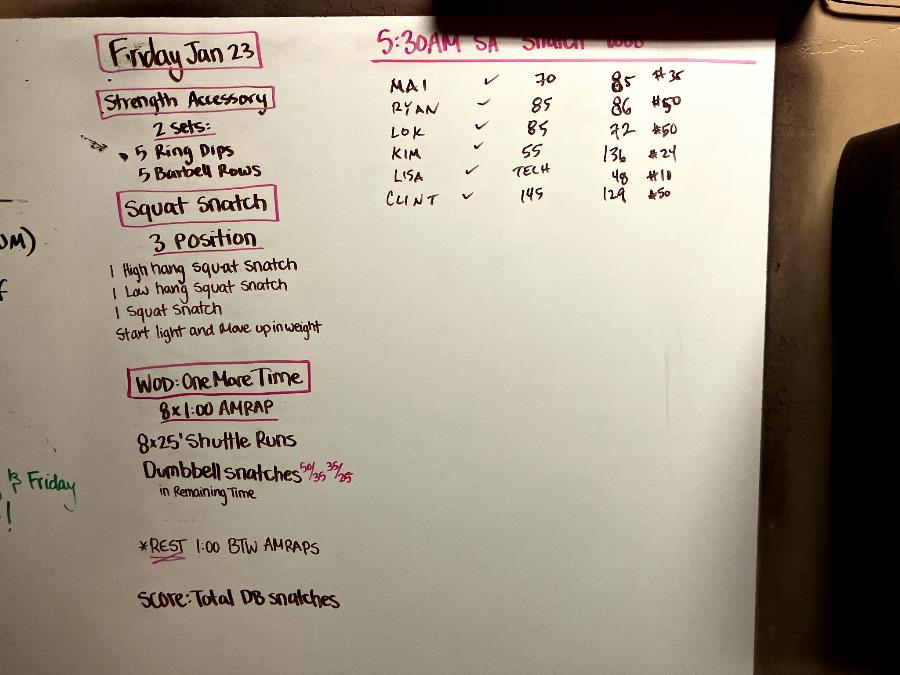 Friday Jan 23
Strength Accessory
2 sets:
5 Ring Dips
5 Barbell Rows
Squat Snatch
3 Position
1 High hang squat snatch
1 Low hang squat snatch
1 Squat snatch
Start light and Move up in weight
WOD: One More Time
8x1:00 AMRAP
8x25' Shuttle Runs
Dumbbell snatches 50/35 35/25
in Remaining Time
*REST 1:00 BTW AMRAPS
Score: Total DB snatches
5:30AM SA Snatch WOD
MAI ✓ 70 85 #35
RYAN ✓ 85 86 #50
LOK ✓ 85 72 #50
KIM ✓ 55 136 #24
LISA ✓ TECH 48 #10
CLINT ✓ 145 129 #50
Friday
!